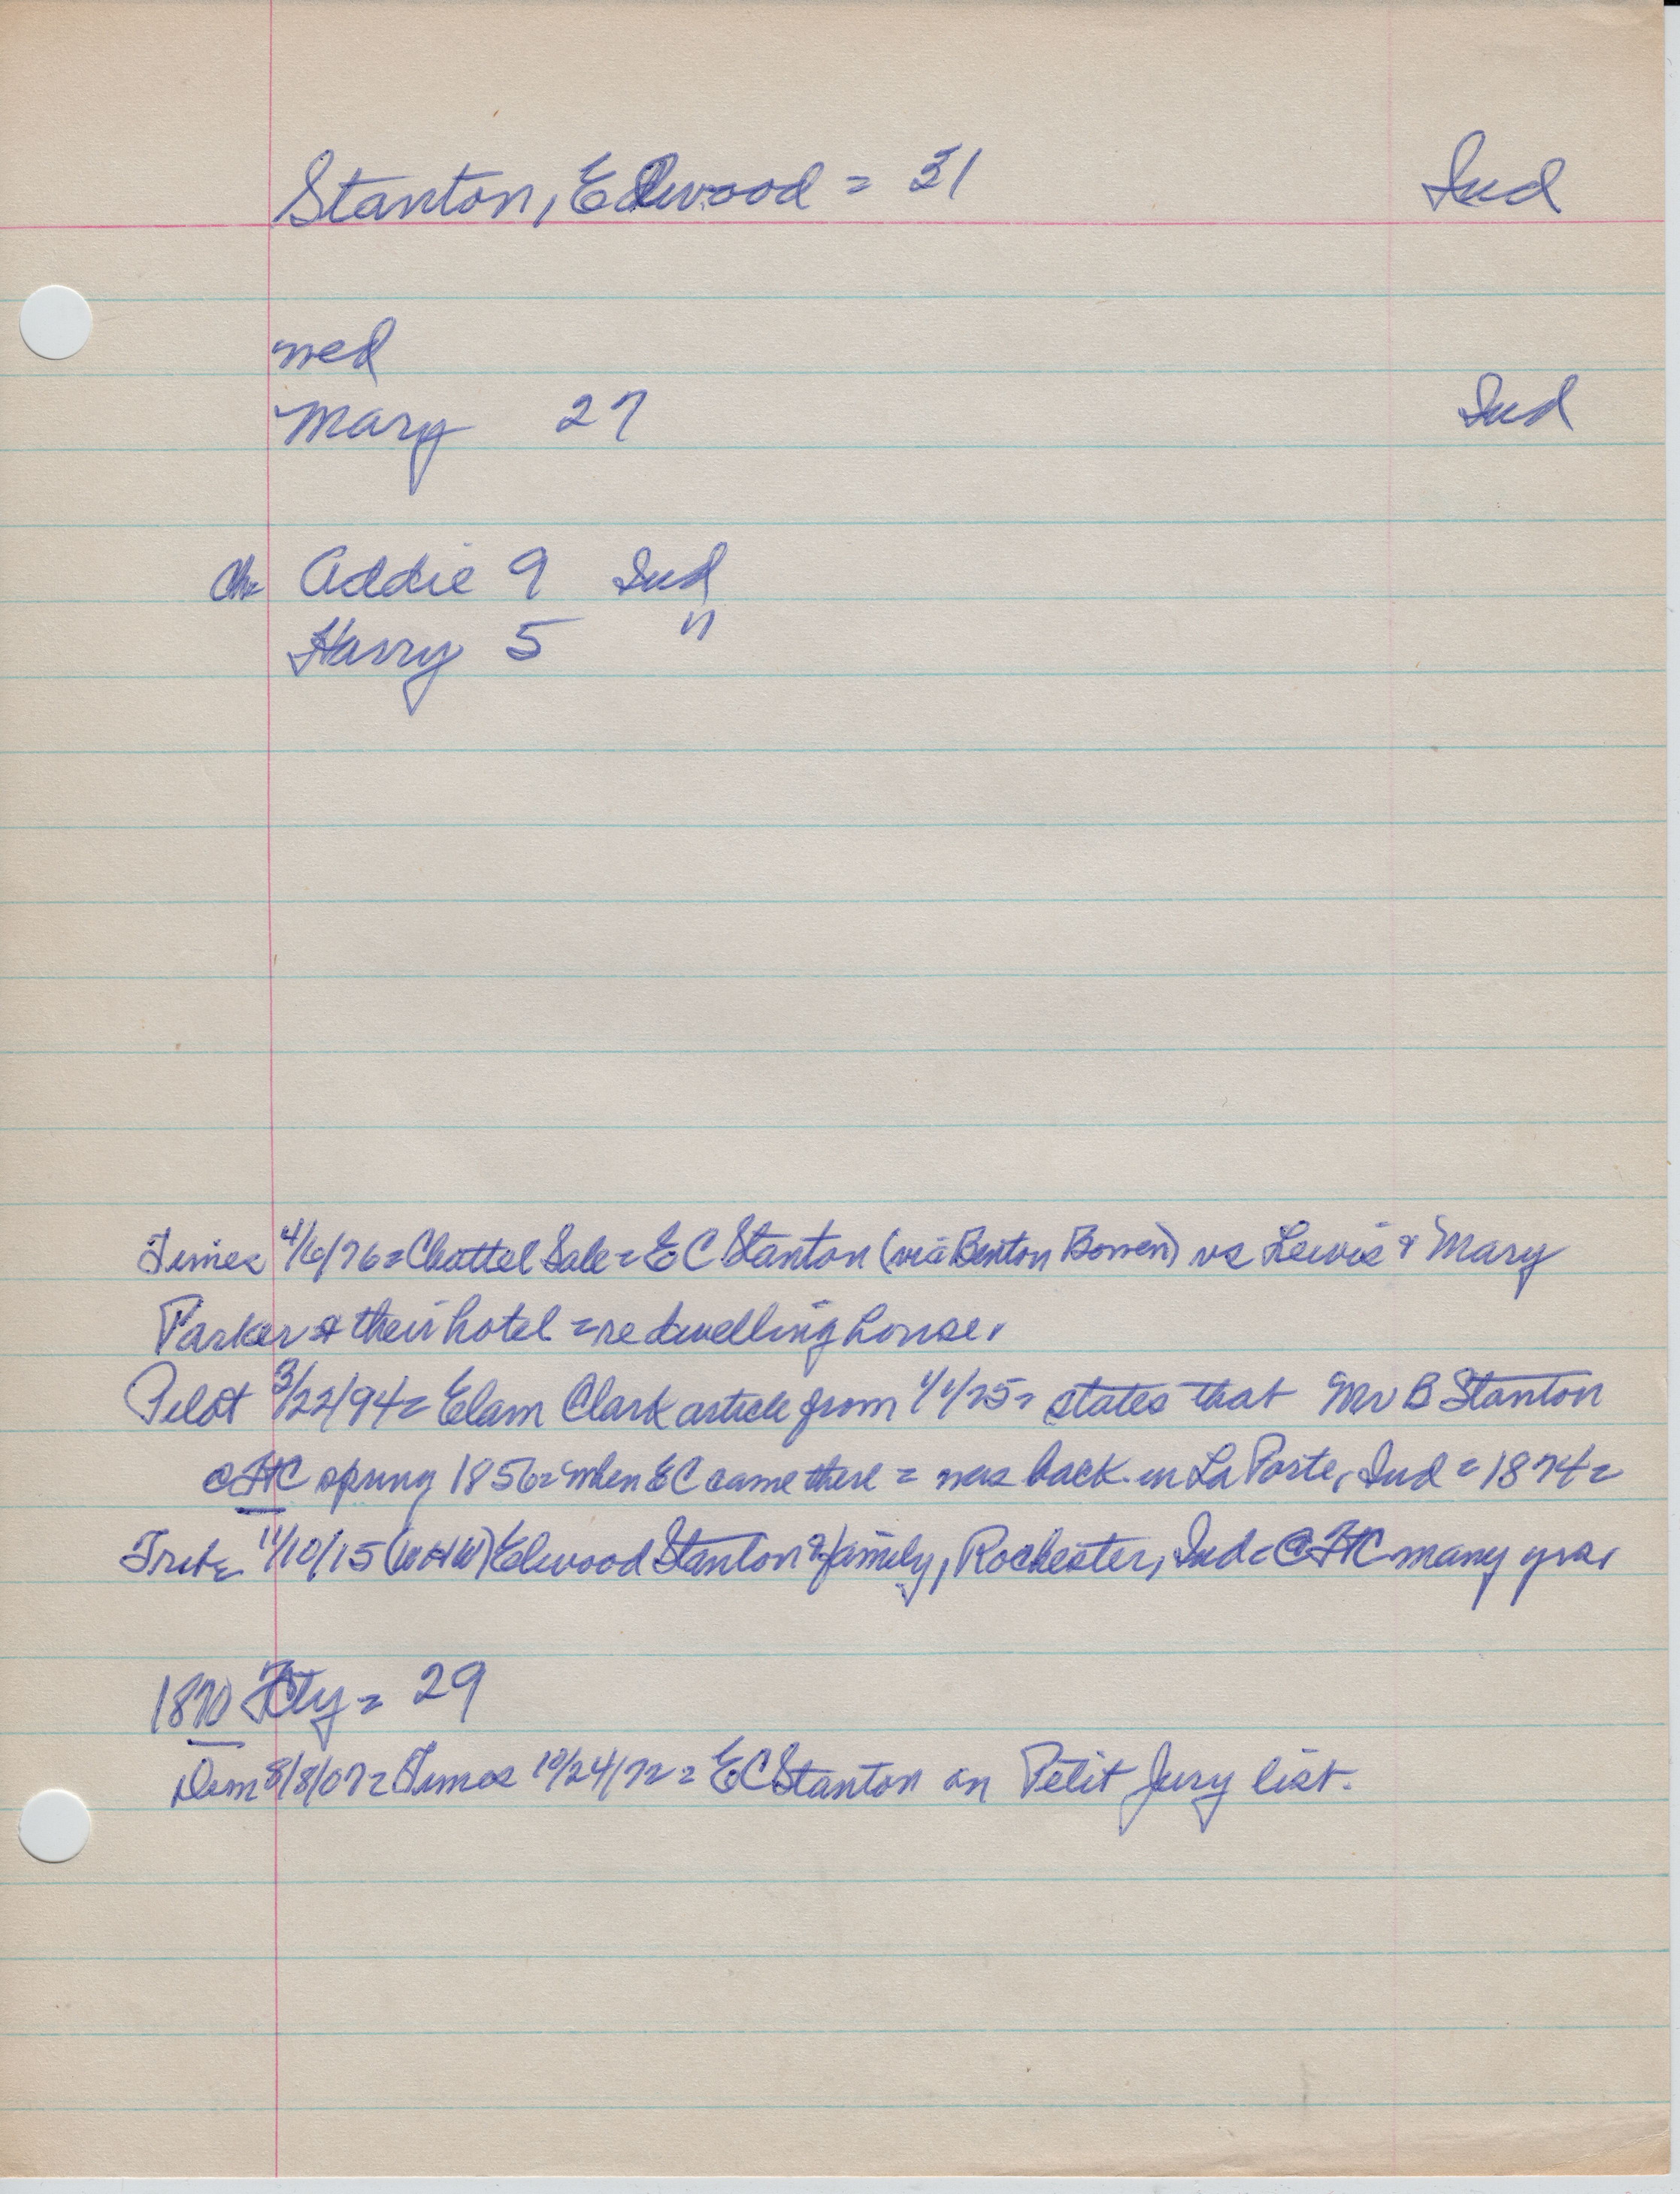 Stanton, Elwood = 31 Ind
med
Mary 27 Ind
Ch Addie 9 Ind
Harry 5 "
Times 4/6/76 = Chattel Sale = E C Stanton (via Benton Bowen) vs Lewis & Mary
Parker & their hotel = re dwelling house.
Pilot 3/22/94 = Elam Clark article from 1/1/75 = states that Mr B Stanton
@ FtC spring 1856 = when EC came there = was back in La Porte, Ind = 1874 =
Trib = 11/10/15 (WHW) Elwood Stanton & family, Rochester, Ind = @ FtC many yrs.
1870 Cty = 29
Dem 8/8/07 = Times 10/24/72 = E C Stanton on Petit Jury list.